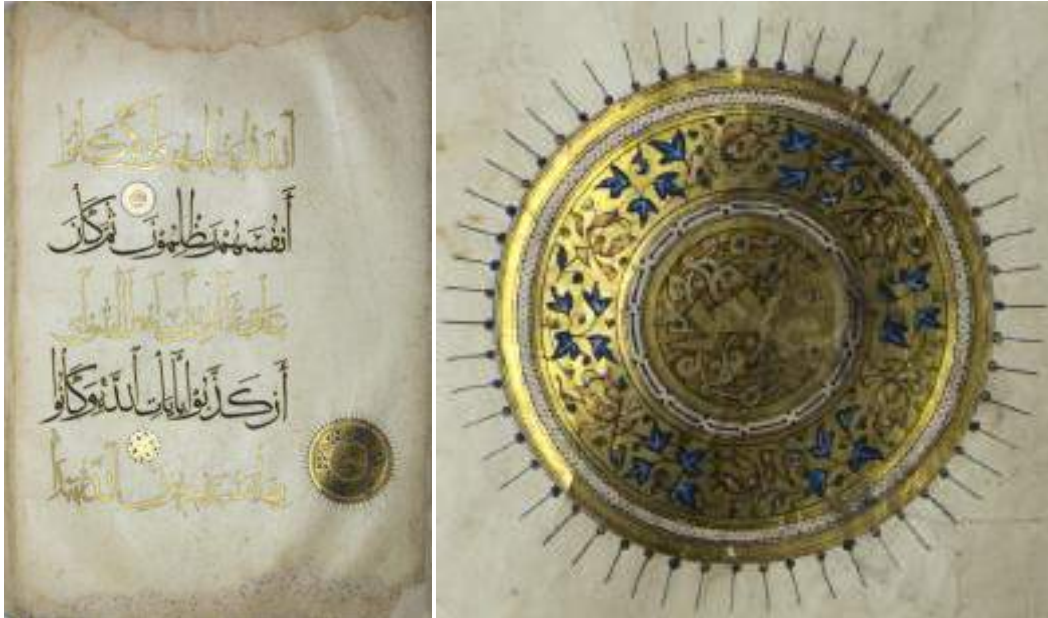 اللَّه ليظلمهم ولكن كانوا
أَنفُسَهُمْ يَظْلِمُونَ ثُمَّ كَانَ
عاقبة الذين أساءوا السوأى
أَن كَذَّبُوا بِآيَاتِ اللَّهِ وَكَانُوا
بها يستهزئون الله يبدأ